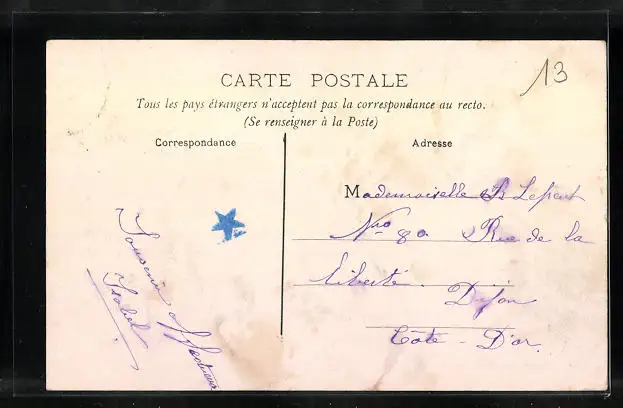 13
CARTE POSTALE
Tous les pays étrangers n'acceptent pas la correspondance au recto.
(Se renseigner à la Poste)
Correspondance
Adresse
Souvenir affectueux
Isabel
Mademoiselle
Nro 80 Rue de la
Liberté.
Dijon
Côte-D'or.